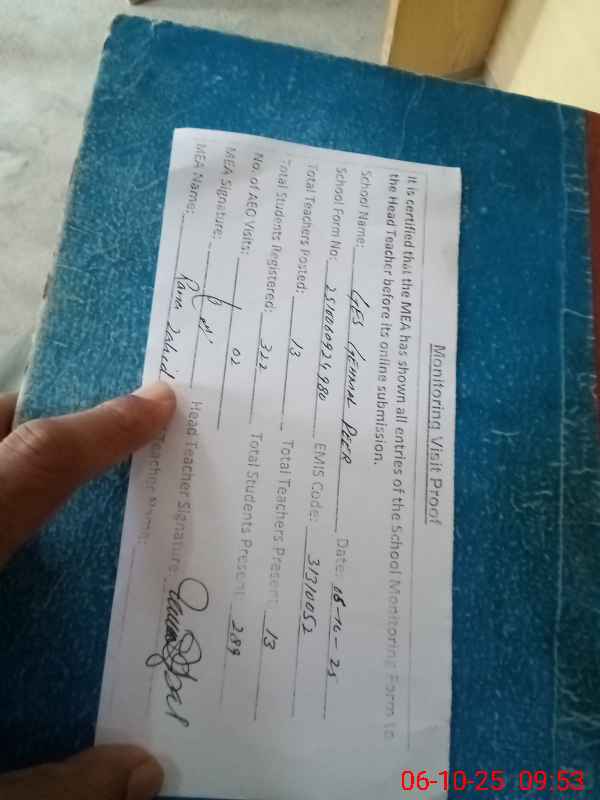 Monitoring Visit Proof
It is certified that the MEA has shown all entries of the School Monitoring Form to
the Head Teacher before its online submission.
School Name: GES GEHNAL PEER Date: 06-10-25
School Form No: 2510060924980 EMIS Code: 31310052
Total Teachers Posted: 13 Total Teachers Present: 13
Total Students Registered: 322 Total Students Present: 289
No. of AEO Visits: 02
MEA Signature: Head Teacher Signature:
MEA Name: Rana Zahid Teacher Name:
06-10-25 09:53